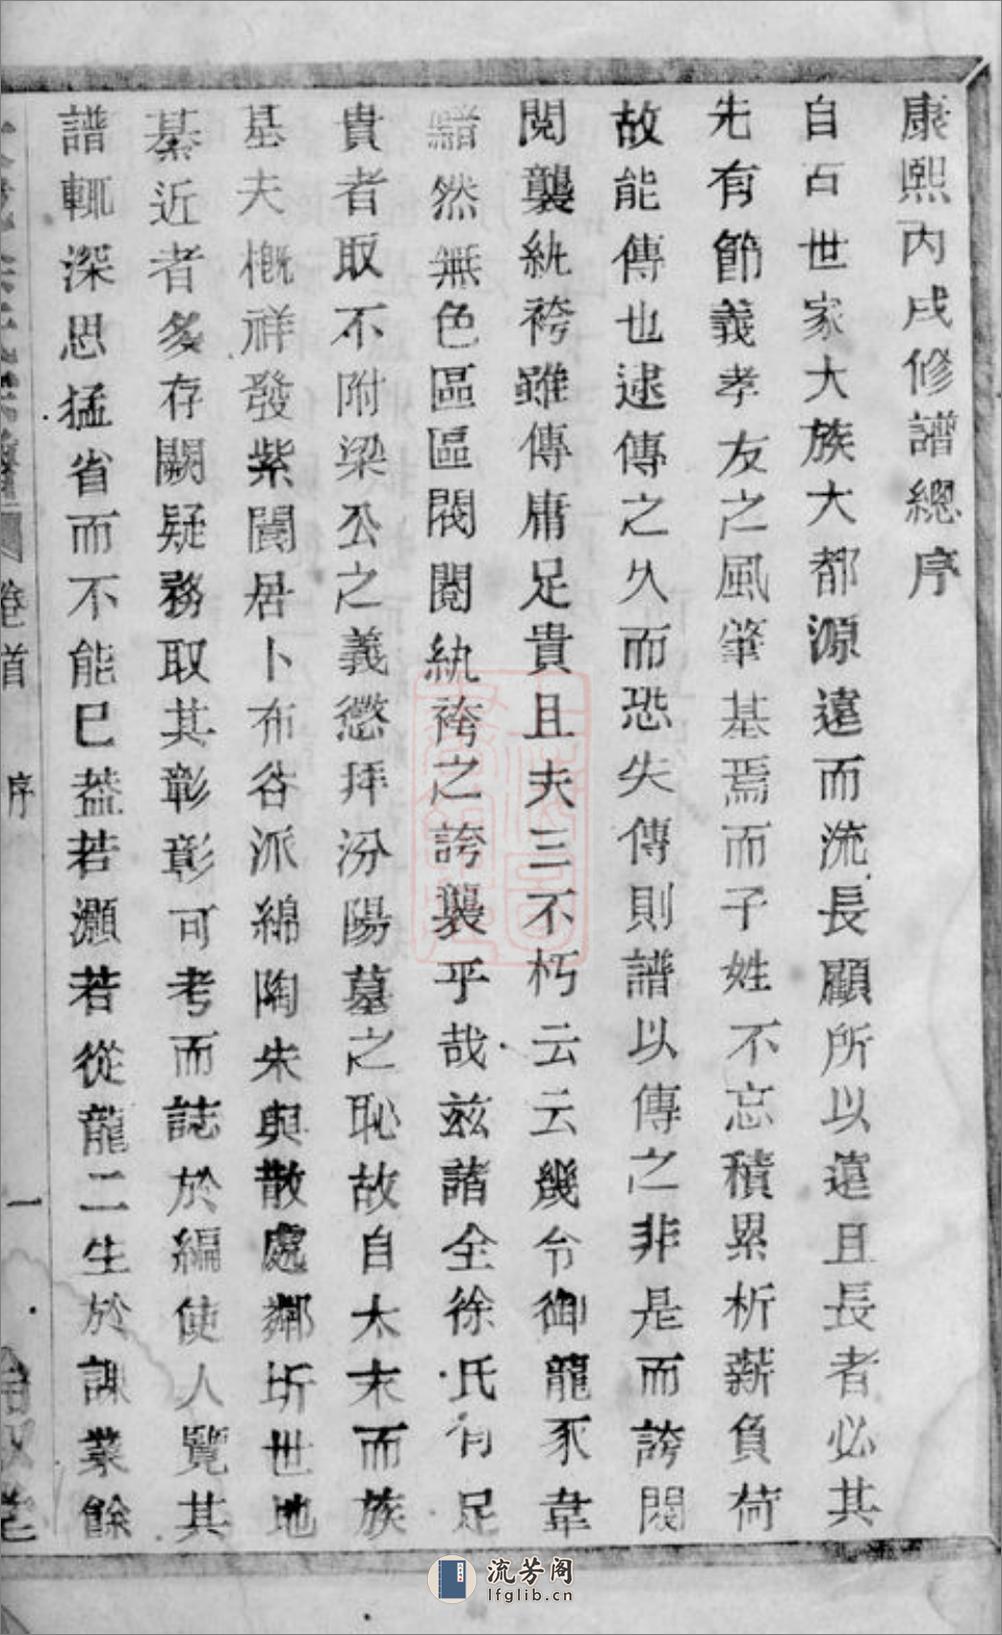 康熙丙戌修譜總序
自古世家大族大都源遠而流長顧所以遠且長者必其
先有節義孝友之風肇基焉而子姓不忘積累析薪負荷
故能傳也逮傳之久而恐失傳則譜以傳之非是而誇閥
閱襲紈袴雖傳庸足貴且夫三不朽云云幾令御龍豕韋
黯然無色區區閥閱紈袴之誇襲乎哉茲諸全徐氏有足
貴者取不附梁公之義懲拜汾陽墓之恥故自太末而族
基夫概祥發紫閬居卜布谷派綿陶朱與散處鄰圻世地
綦近者多存闕疑務取其彰彰可考而誌於編使人覽其
譜輒深思猛省而不能已葢若灝若從龍二生於課業餘
卷首
序
一
流芳阁
lfglib.cn